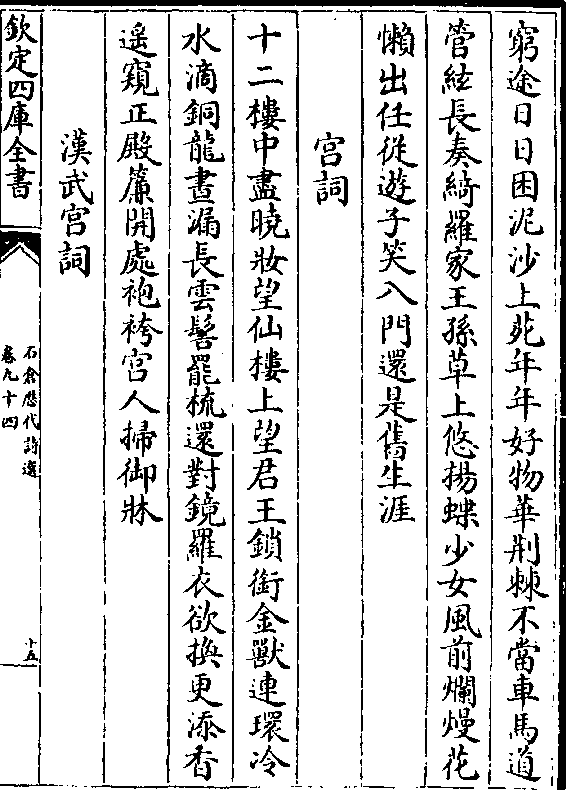 窮途日日困泥沙上苑年年好物華荆棘不當車馬道
管絃長奏綺羅家王孫草上悠揚蝶少女風前爛熳花
懶出任從遊子笑入門還是舊生涯
宮詞
十二樓中盡曉妝望仙樓上望君王鎖銜金獸連環冷
水滴銅龍晝漏長雲髻罷梳還對鏡羅衣欲換更添香
遥窺正殿簾開處袍袴宮人掃御牀
漢武宮詞
欽定四庫全書
石倉歷代詩選
卷九十四
十五